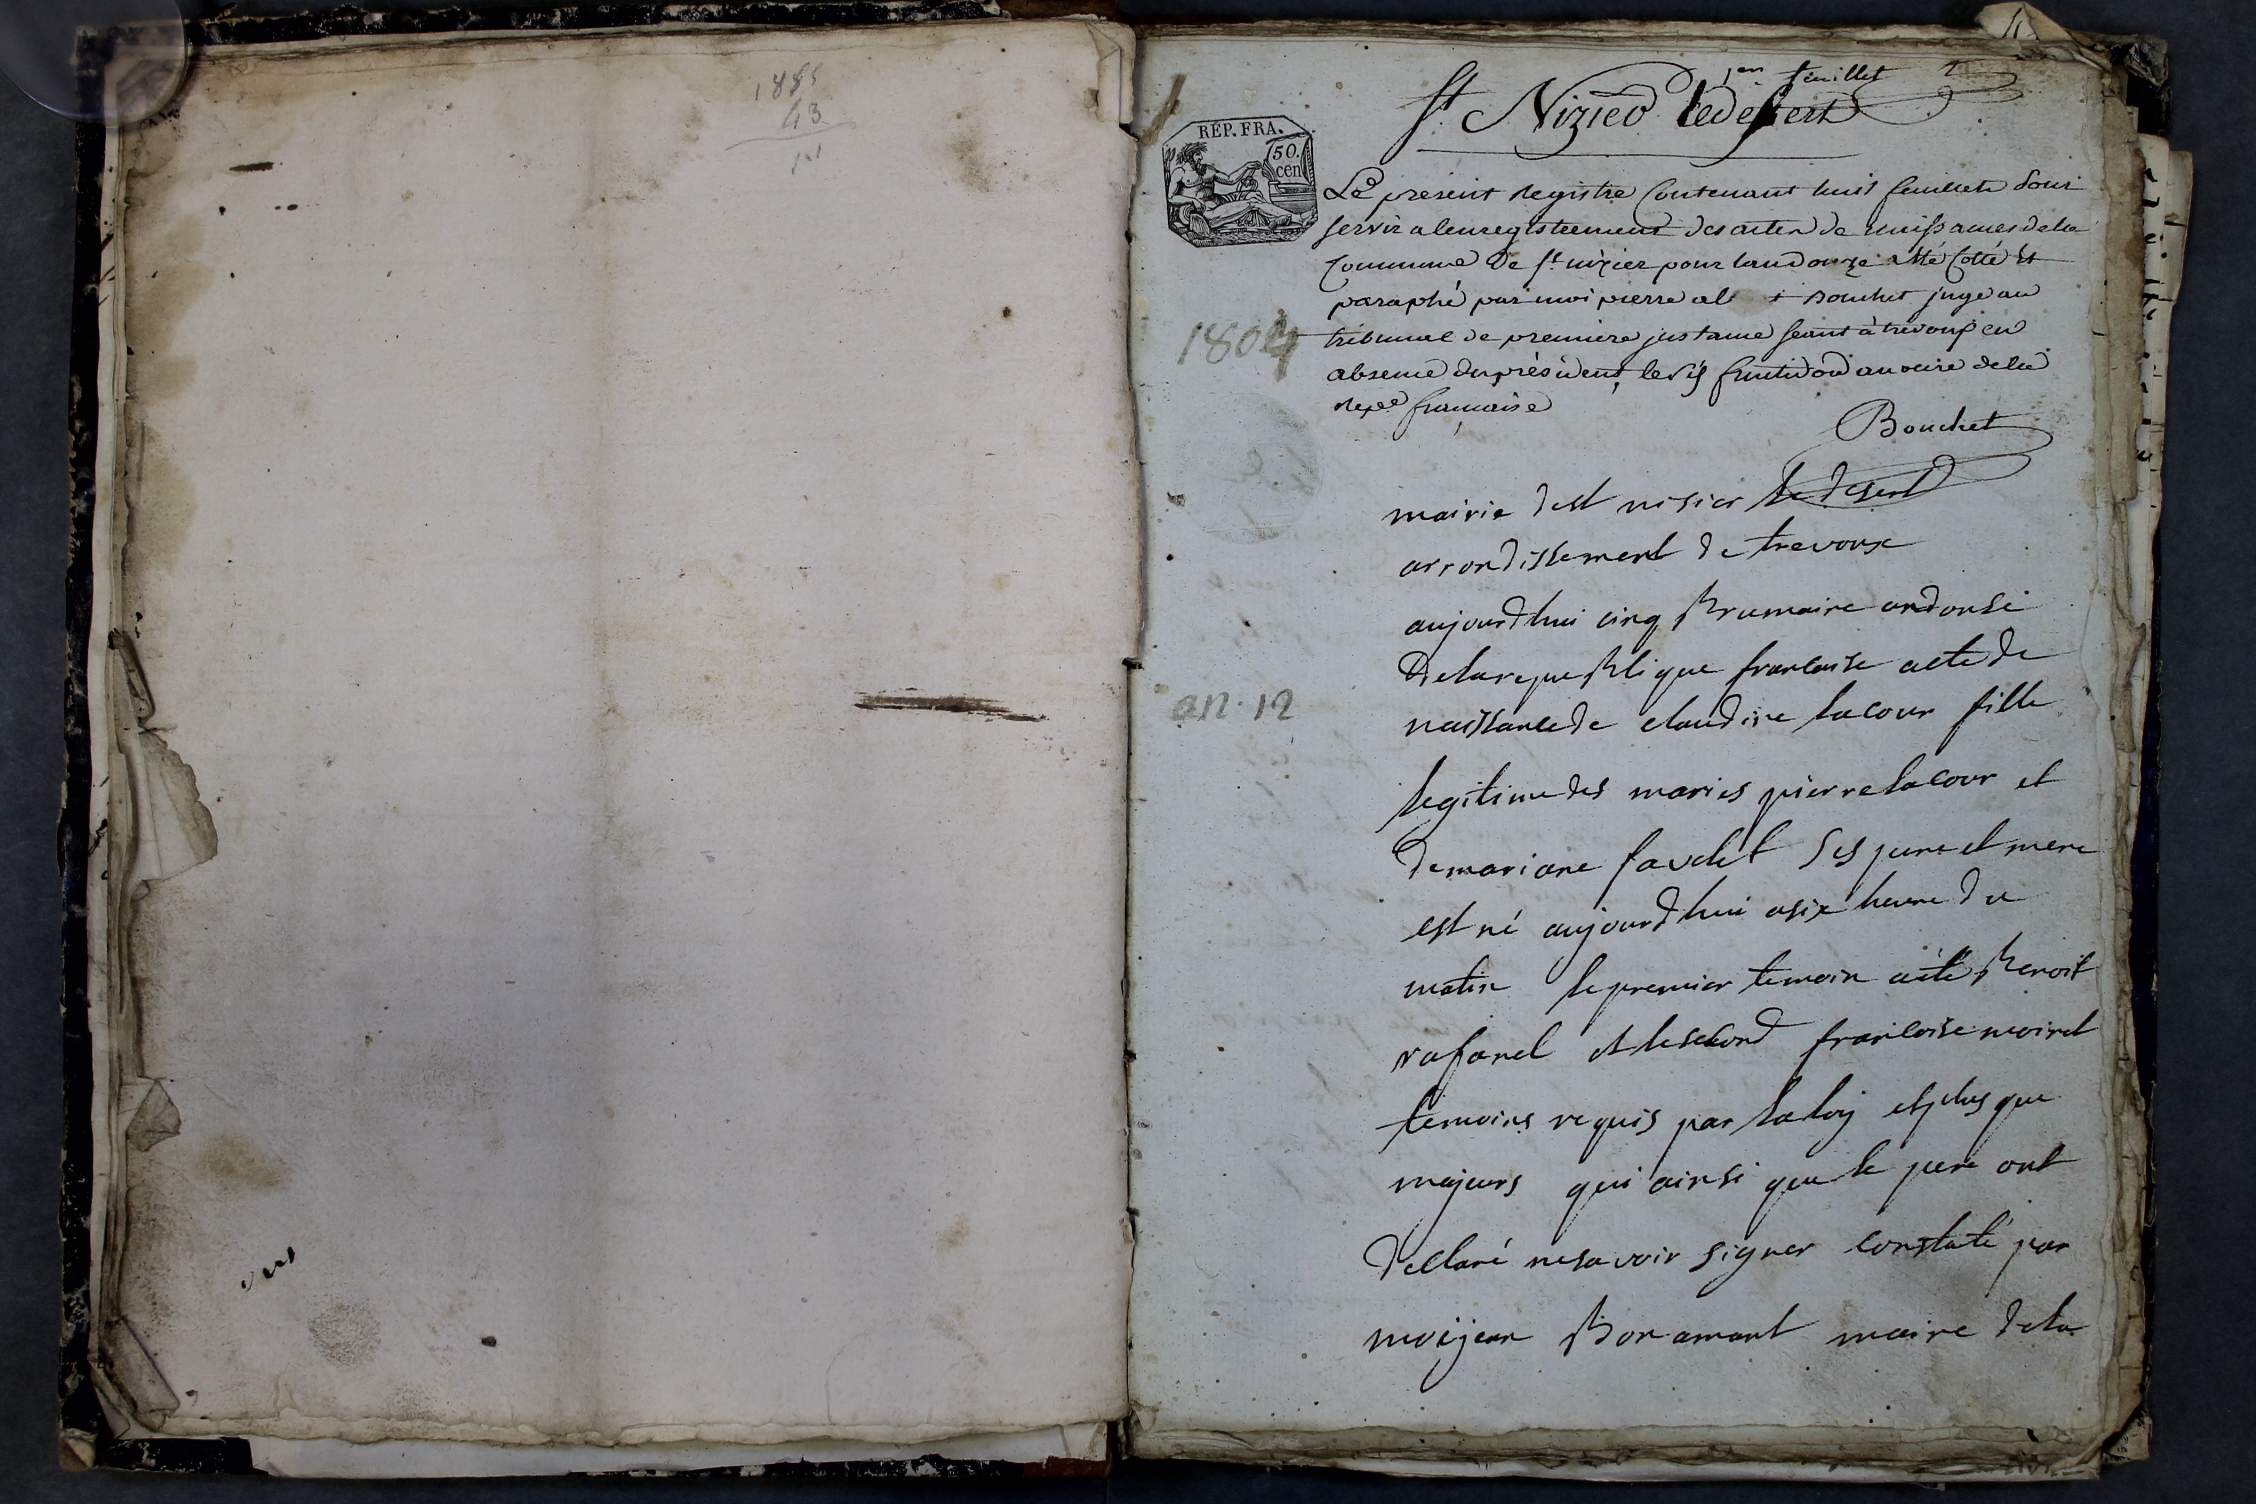 1885
43
vers
1er feuillet
St Nizier le désert
RÉP. FRA.
50.
cen
Le présent registre contenant huit feuillets pour
servir a lenregistrement des actes de naissances de la
commune de St nizier pour lan douze a été cotté et
paraphé par moi pierre Bouchet juge au
tribunal de premiere instance séant à trévoux en
absence du président, le fructidor an onze de la
repe française
Bouchet
1804
an. 12
mairie de st nisier le desert
arrondissement de trevoux
aujourdhui cinq Brumaire an donse
de la republique francaise acte de
naissance de claudine lacour fille
legitime des maries pierre lacour et
de mariane favelet ses pere et mere
est né aujourdhui a six heure du
matin le premier temoin a été Benoit
rafanel et le second francoise moiret
temoins requis par la loy et plus que
majeurs qui ainsi que le pere ont
declaré ne savoir signer constaté par
moi jean Bonamant maire de la